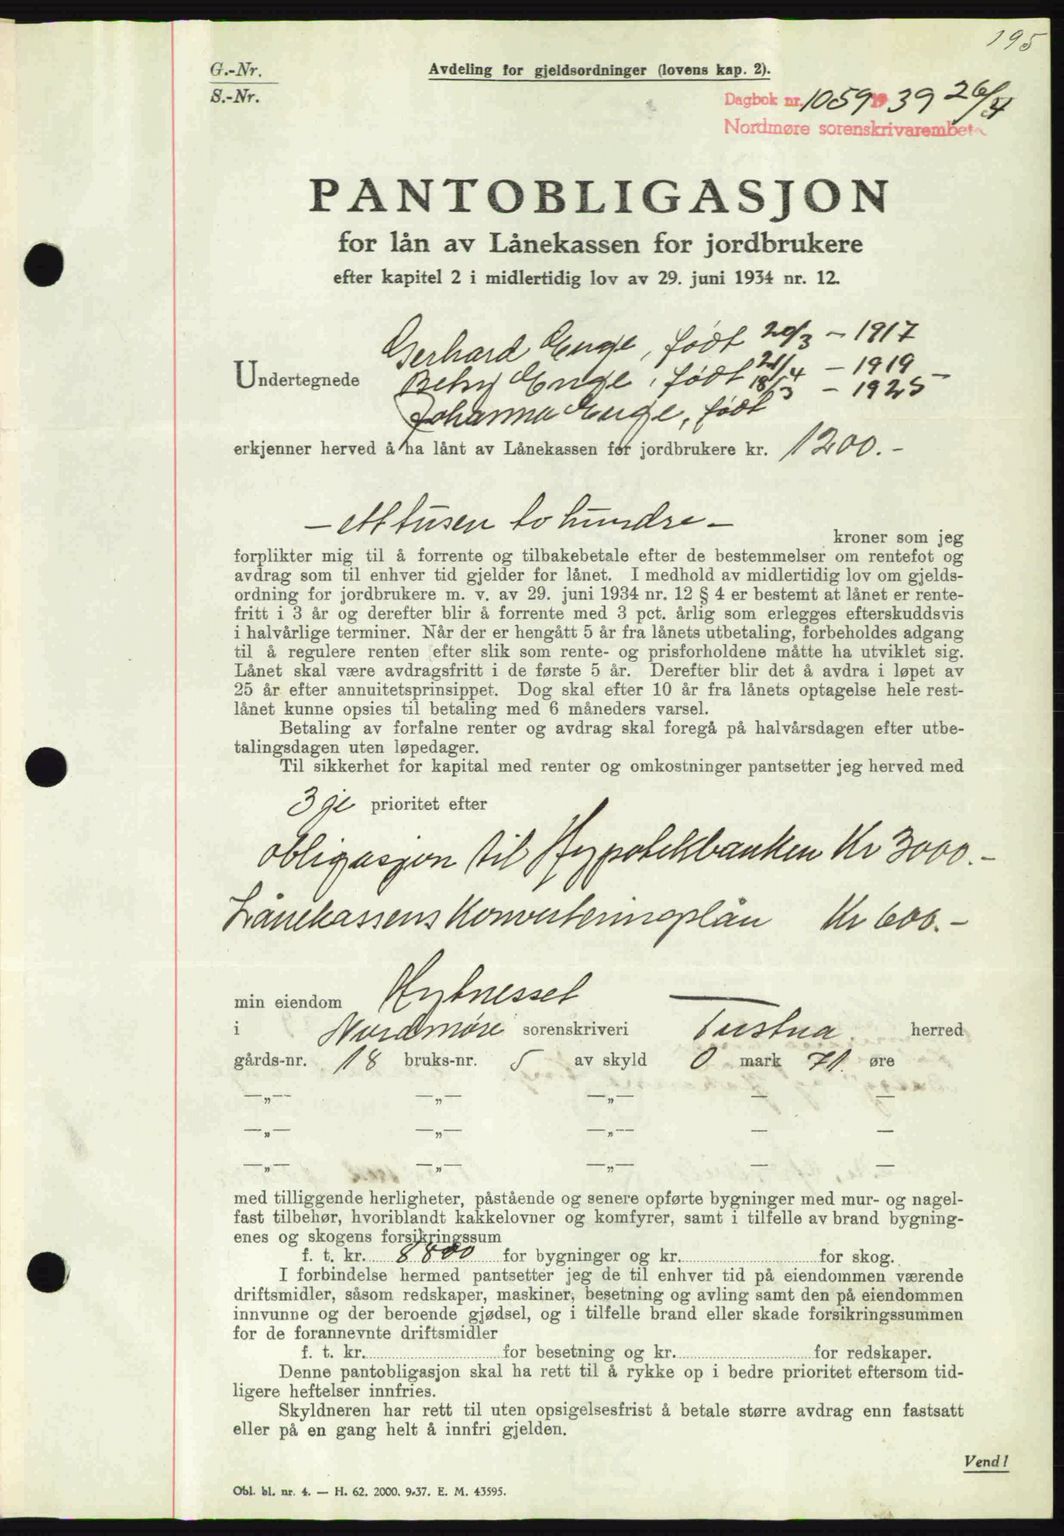 195
G.-Nr.
S.-Nr.
Avdeling for gjeldsordninger (lovens kap. 2).
Dagbok nr. 1059 1939 26/4
Nordmøre sorenskrivarembete
PANTOBLIGASJON
for lån av Lånekassen for jordbrukere
efter kapitel 2 i midlertidig lov av 29. juni 1934 nr. 12.
Gerhard Enge, født 20/3 – 1917
Undertegnede Betsy Enge, født 21/4 – 1919
Johanna Enge, født 18/3 – 1925
erkjenner herved å ha lånt av Lånekassen for jordbrukere kr. 1200.-
– ett tusen to hundre –
kroner som jeg
forplikter mig til å forrente og tilbakebetale efter de bestemmelser om rentefot og
avdrag som til enhver tid gjelder for lånet. I medhold av midlertidig lov om gjelds-
ordning for jordbrukere m. v. av 29. juni 1934 nr. 12 § 4 er bestemt at lånet er rente-
fritt i 3 år og derefter blir å forrente med 3 pct. årlig som erlegges efterskuddsvis
i halvårlige terminer. Når der er hengått 5 år fra lånets utbetaling, forbeholdes adgang
til å regulere renten efter slik som rente- og prisforholdene måtte ha utviklet sig.
Lånet skal være avdragsfritt i de første 5 år. Derefter blir det å avdra i løpet av
25 år efter annuitetsprinsippet. Dog skal efter 10 år fra lånets optagelse hele rest-
lånet kunne opsies til betaling med 6 måneders varsel.
Betaling av forfalne renter og avdrag skal foregå på halvårsdagen efter utbe-
talingsdagen uten løpedager.
Til sikkerhet for kapital med renter og omkostninger pantsetter jeg herved med
3 je prioritet efter
obligasjon til Hypotekbanken Kr 3000.-
Lånekassens Konverteringslån Kr 600.-
min eiendom Hytnesset
i Nordmøre sorenskriveri Tustna herred
gårds-nr. 18 bruks-nr. 5 av skyld 0 mark 71 øre
—„— —„— —„— — —
—„— —„— —„— — —
—„— —„— —„— — —
med tilliggende herligheter, påstående og senere opførte bygninger med mur- og nagel-
fast tilbehør, hvoriblandt kakkelovner og komfyrer, samt i tilfelle av brand bygning-
enes og skogens forsikringssum
f. t. kr. 8800 for bygninger og kr. for skog.
I forbindelse hermed pantsetter jeg de til enhver tid på eiendommen værende
driftsmidler, såsom redskaper, maskiner, besetning og avling samt den på eiendommen
innvunne og der beroende gjødsel, og i tilfelle brand eller skade forsikringssummen
for de forannevnte driftsmidler
f. t. kr. for besetning og kr. for redskaper.
Denne pantobligasjon skal ha rett til å rykke op i bedre prioritet eftersom tid-
ligere heftelser innfries.
Skyldneren har rett til uten opsigelsesfrist å betale større avdrag enn fastsatt
eller på en gang helt å innfri gjelden.
Vend!
Obl. bl. nr. 4. — H. 62. 2000. 9-37. E. M. 43595.